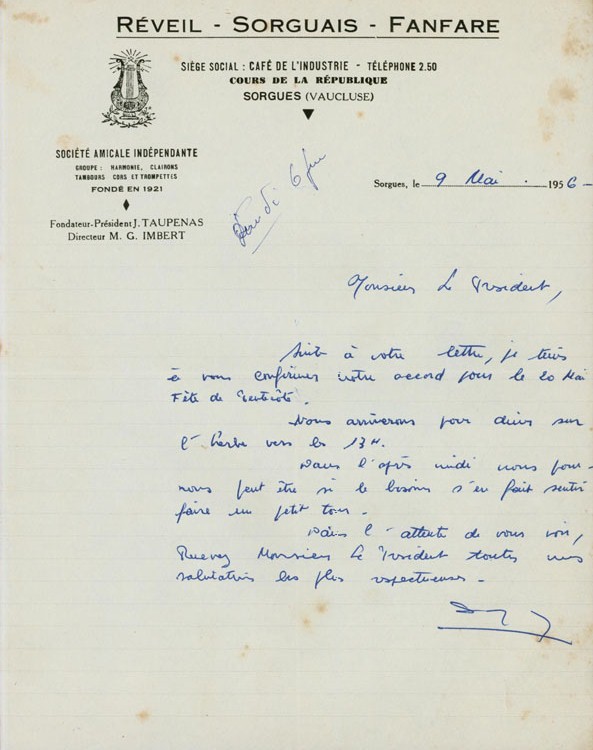 RÉVEIL - SORGUAIS - FANFARE
SIÈGE SOCIAL : CAFÉ DE L'INDUSTRIE - TÉLÉPHONE 2.50
COURS DE LA RÉPUBLIQUE
SORGUES (VAUCLUSE)
SOCIÉTÉ AMICALE INDÉPENDANTE
GROUPE : HARMONIE, CLAIRONS
TAMBOURS CORS ET TROMPETTES
FONDÉ EN 1921
Fondateur-Président J. TAUPENAS
Directeur M. G. IMBERT
Sorgues, le 9 Mai 1956-
Monsieur Le Président,
Suite à votre lettre, je tiens
à vous confirmer notre accord pour le 20 Mai
Fête de Pentecôte.
Nous arriverons pour diner sur
l'herbe vers les 13 H.
Dans l'après midi nous pour-
rons peut être si le besoin s'en fait sentir
faire un petit tour.
Dans l'attente de vous voir,
Recevez Monsieur Le Président toutes nos
salutations les plus respectueuses -